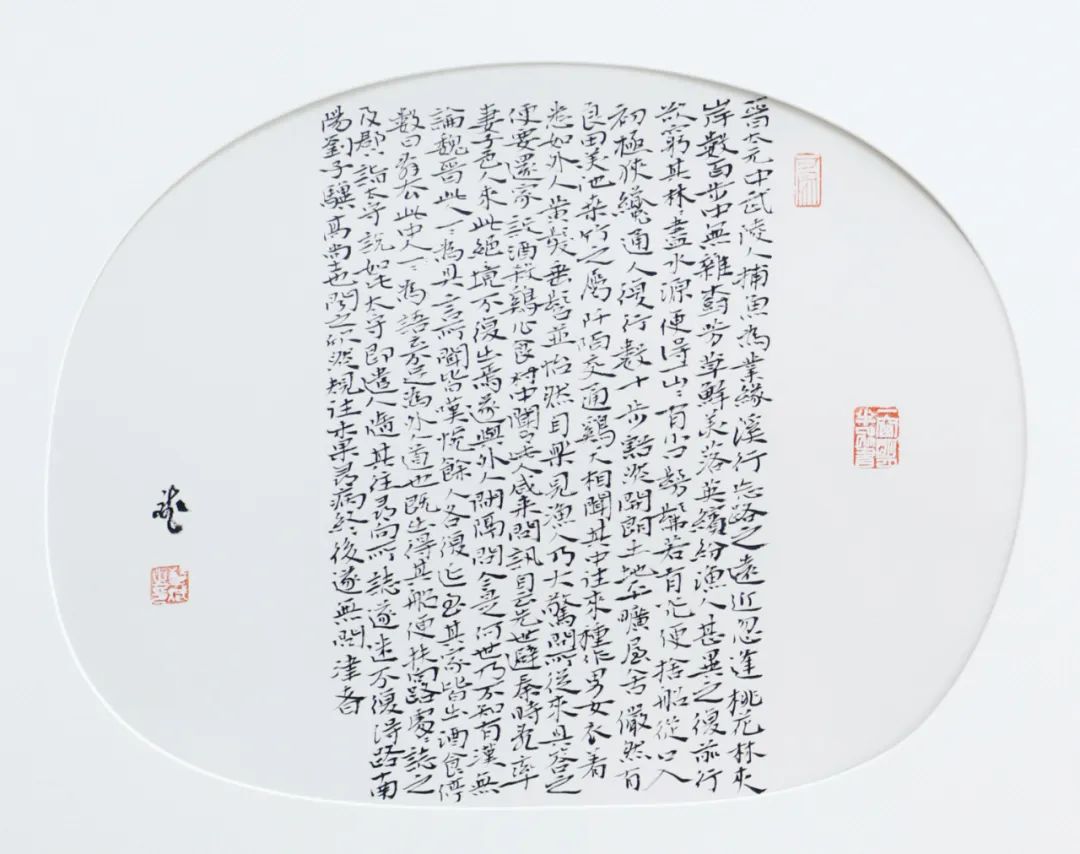 晉太元中武陵人捕魚為業緣溪行忘路之遠近忽逢桃花林夾
岸數百步中無雜樹芳草鮮美落英繽紛漁人甚異之復前行
欲窮其林〻盡水源便得一山〻有小口髣髴若有光便捨船從口入
初極狹纔通人復行數十步豁然開朗土地平曠屋舍儼然有
良田美池桑竹之屬阡陌交通鷄犬相聞其中往來種作男女衣着
悉如外人黃髮垂髫並怡然自樂見漁人乃大驚問所從來具答之
便要還家設酒殺鷄作食村中聞此人咸來問訊自云先世避秦時亂率
妻子邑人來此絕境不復出焉遂與外人間隔問今是何世乃不知有漢無
論魏晉此人一〻為具言所聞皆嘆惋餘人各復延至其家皆出酒食停
數日辭去此中人〻為語云不足為外人道也既出得其船便扶向路處〻誌之
及郡詣太守說如此太守即遣人隨其往尋向所誌遂迷不復得路南
陽劉子驥高尚士也聞之欣然規往未果尋病終後遂無問津者